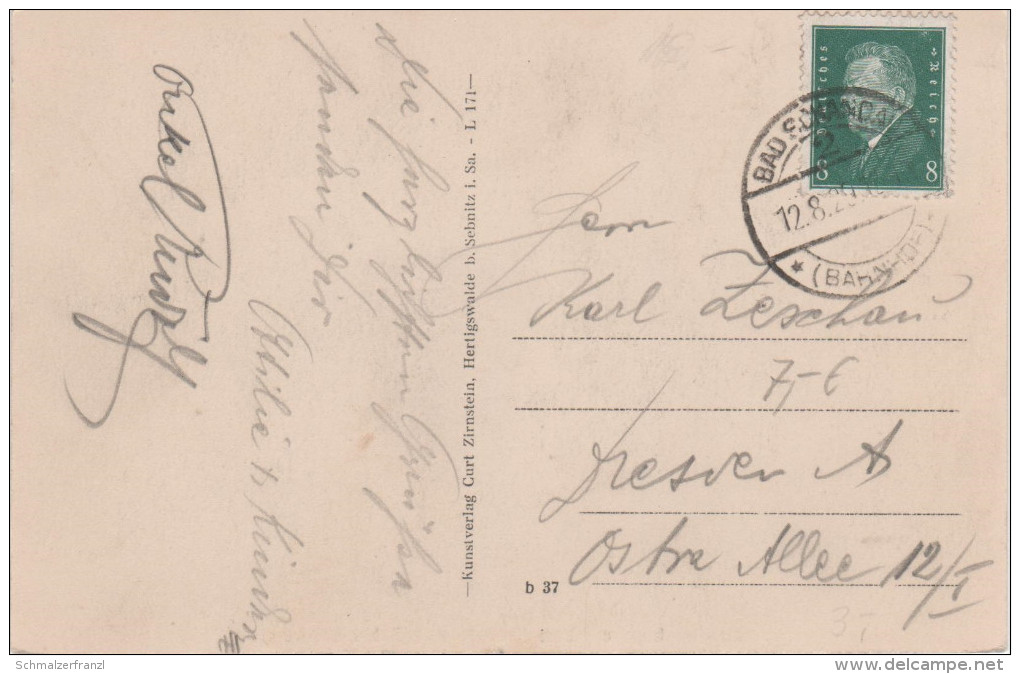 Die herzlichsten Grüße
senden Dir
Ottilie &
Onkel
Kunstverlag Curt Zirnstein, Hertigswalde b. Sebnitz i. Sa. - L 171
Deutsches Reich
8 8
BAD SCHANDAU
2
12.8.29
(BAHNHOF)
Herrn
Karl Zeschau
7,-6
Dresden A
Ostra Allee 12/I
b 37
3,-
Schmalzerfranzl
www.delcampe.net